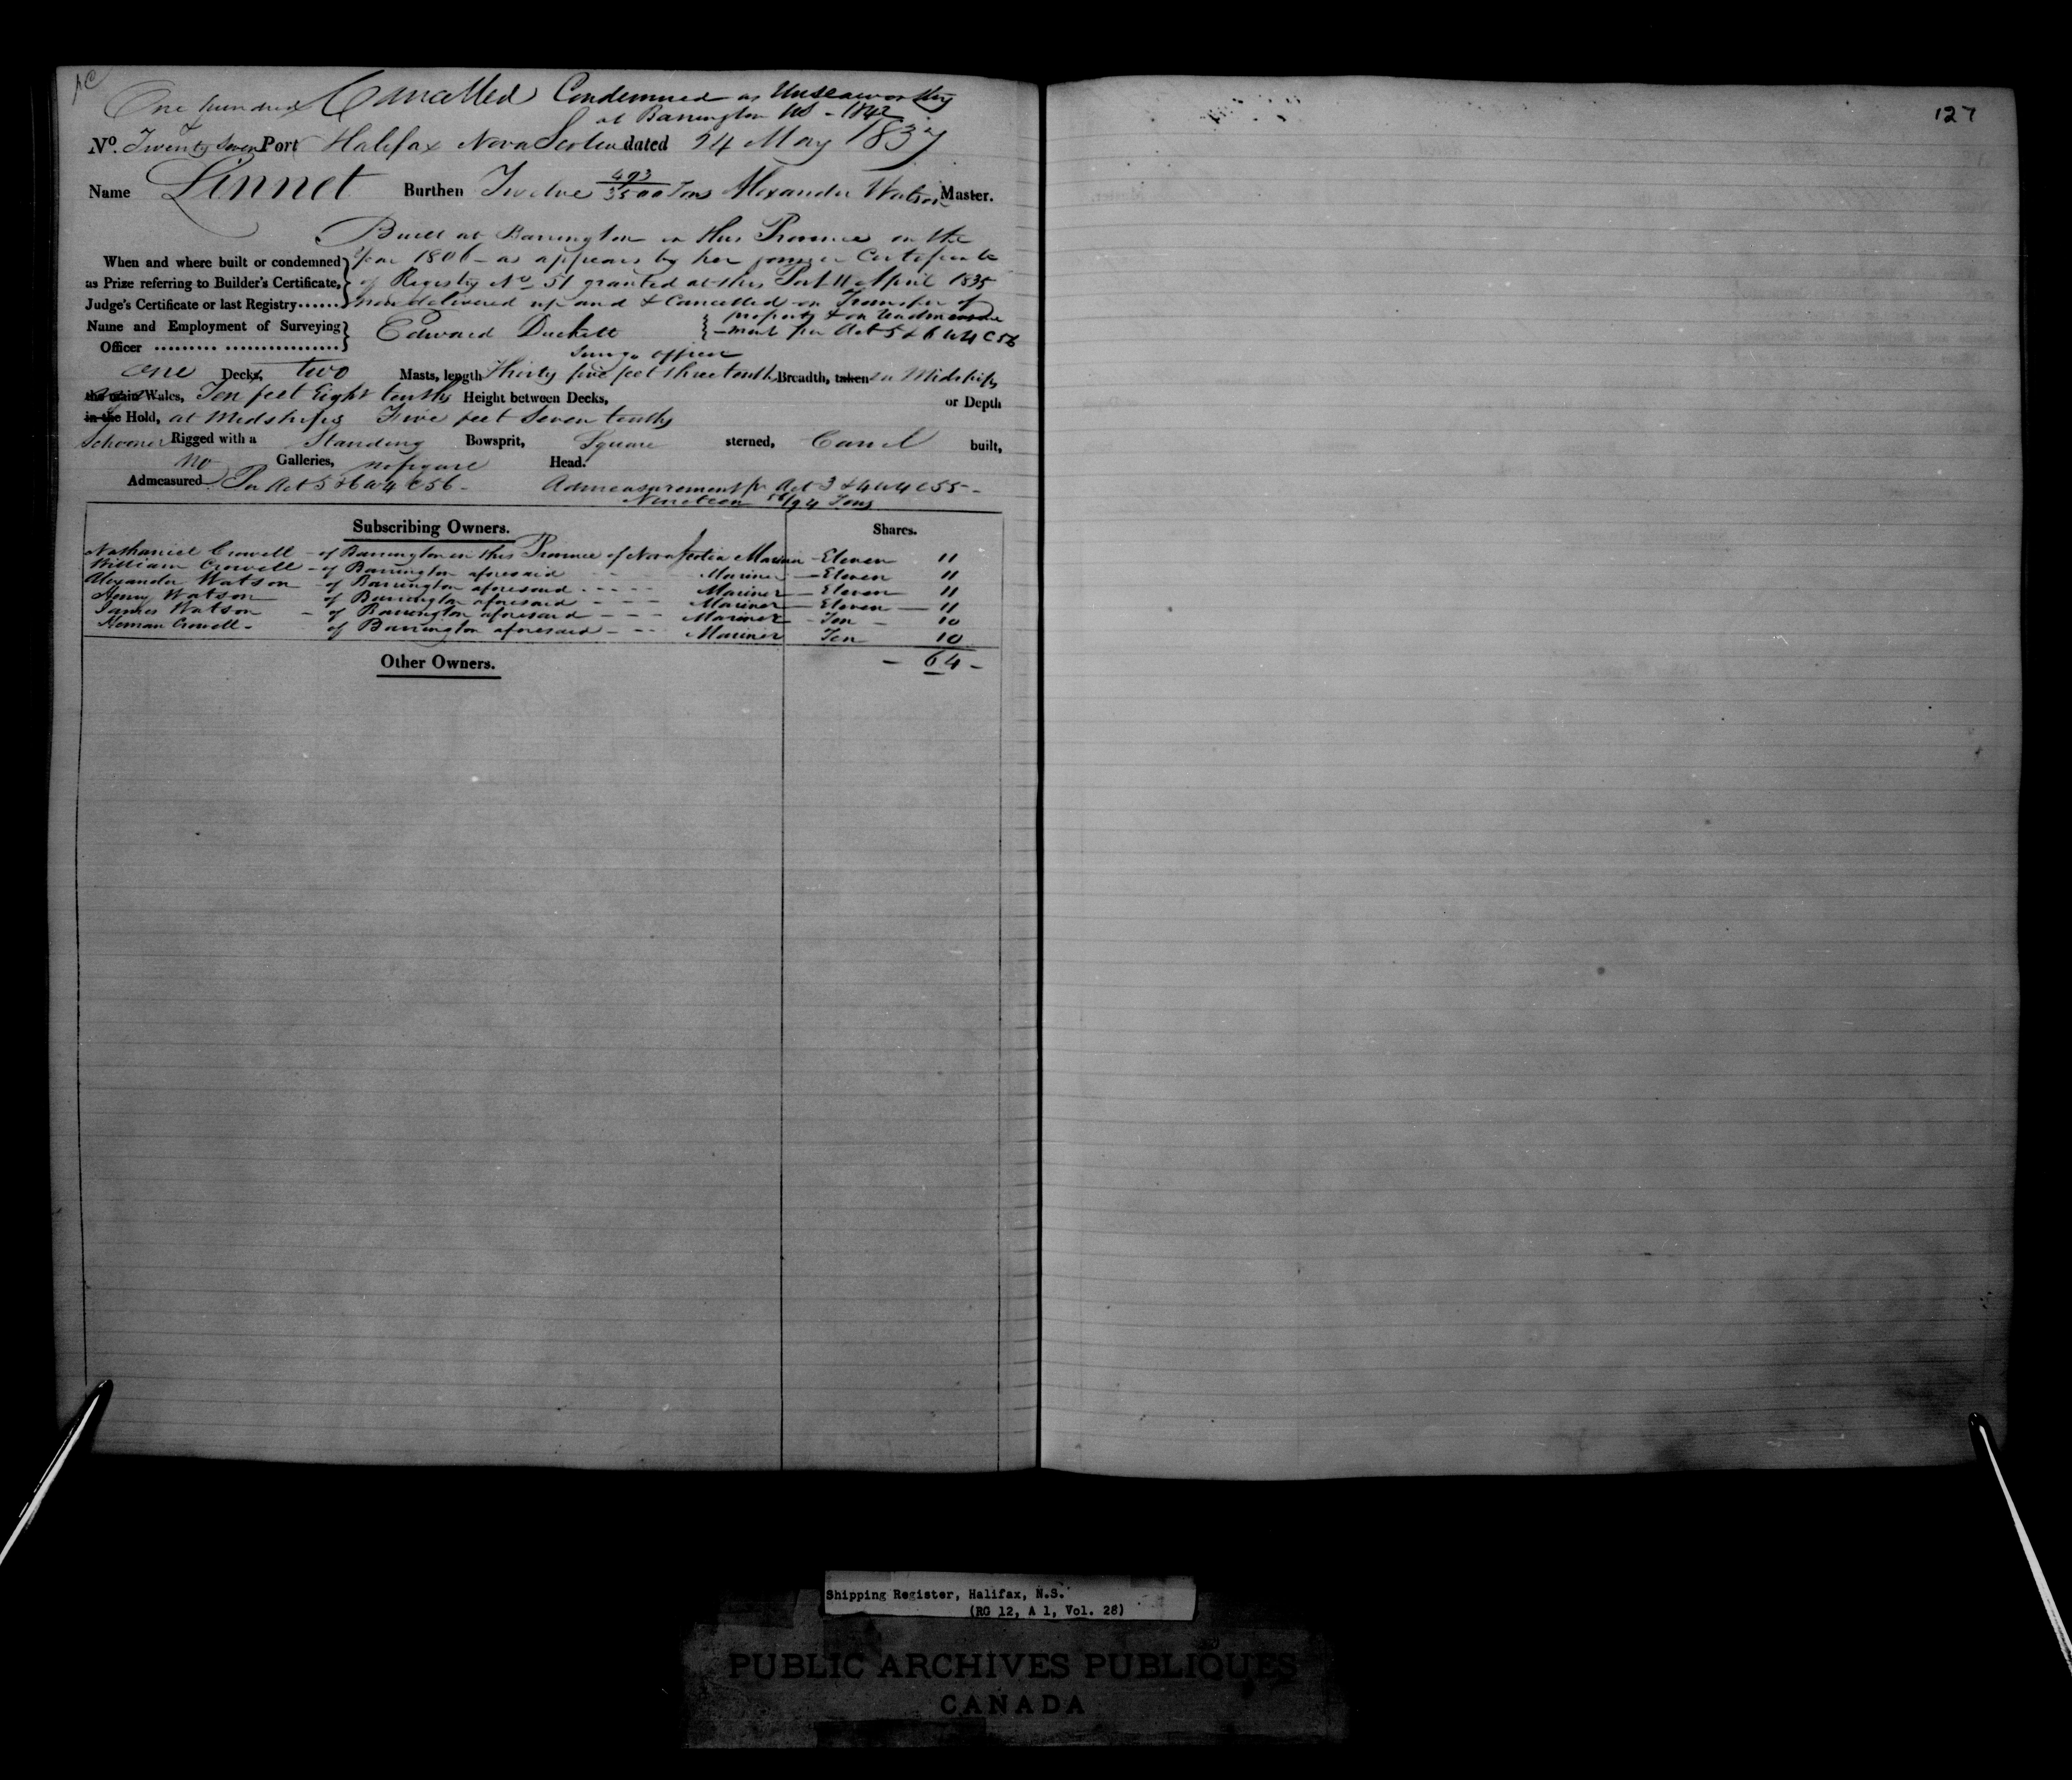 One hundred Cancelled Condemned as Unseaworthy
at Barrington NS - 1842
No. Twenty Seven Port Halifax Nova Scotia dated 24 May 1837
Name Linnet Burthen Twelve 493/3500 Tons Alexander Watson Master.
Built at Barrington in this Province in the
When and where built or condemned year 1806 - as appears by her former Certificate
as Prize referring to Builder's Certificate, of Registry No 51 granted at this Port 11 April 1835
Judge's Certificate or last Registry...... now delivered up and & Cancelled on Transfer of
property & on Readmeasure
Name and Employment of Surveying Edward Duckett -ment per Act 5 & 6 W 4 C 56
Officer ......... ................
Survg. officer
one Decks, two Masts, length Thirty five feet three tenths Breadth, taken in Midships
the main Wales, Ten feet Eight tenths Height between Decks, or Depth
in the Hold, at Midships Five feet Seven tenths
Schooner Rigged with a Standing Bowsprit, Square sterned, Carvel built,
No Galleries, no figure Head.
Admeasured Per Act 5 & 6 W 4 C 56 - Admeasurement pr Act 3 & 4 W 4 C 55 -
Nineteen 56/94 Tons
Subscribing Owners. Shares.
Nathaniel Crowell - of Barrington in this Province of Nova Scotia Mariner - Eleven 11
William Crowell - of Barrington aforesaid - - - Mariner - Eleven 11
Alexander Watson - of Barrington aforesaid - - - - Mariner - Eleven 11
Henry Watson of Barrington aforesaid - - - Mariner - Eleven - 11
James Watson - of Barrington aforesaid - - - Mariner - Ten - 10
Heman Crowell - of Barrington aforesaid - - - Mariner Ten 10
Other Owners. - 64 -
127
Shipping Register, Halifax, N.S.
(RG 12, A 1, Vol. 28)
PUBLIC ARCHIVES PUBLIQUES
CANADA